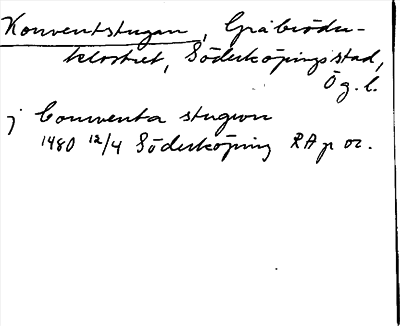 Konventstugan, Gråbrödra-
klostret, Söderköpings stad,
Ög. l.
j Conventa stugwn
1480 12/4 Söderköping RA p or.